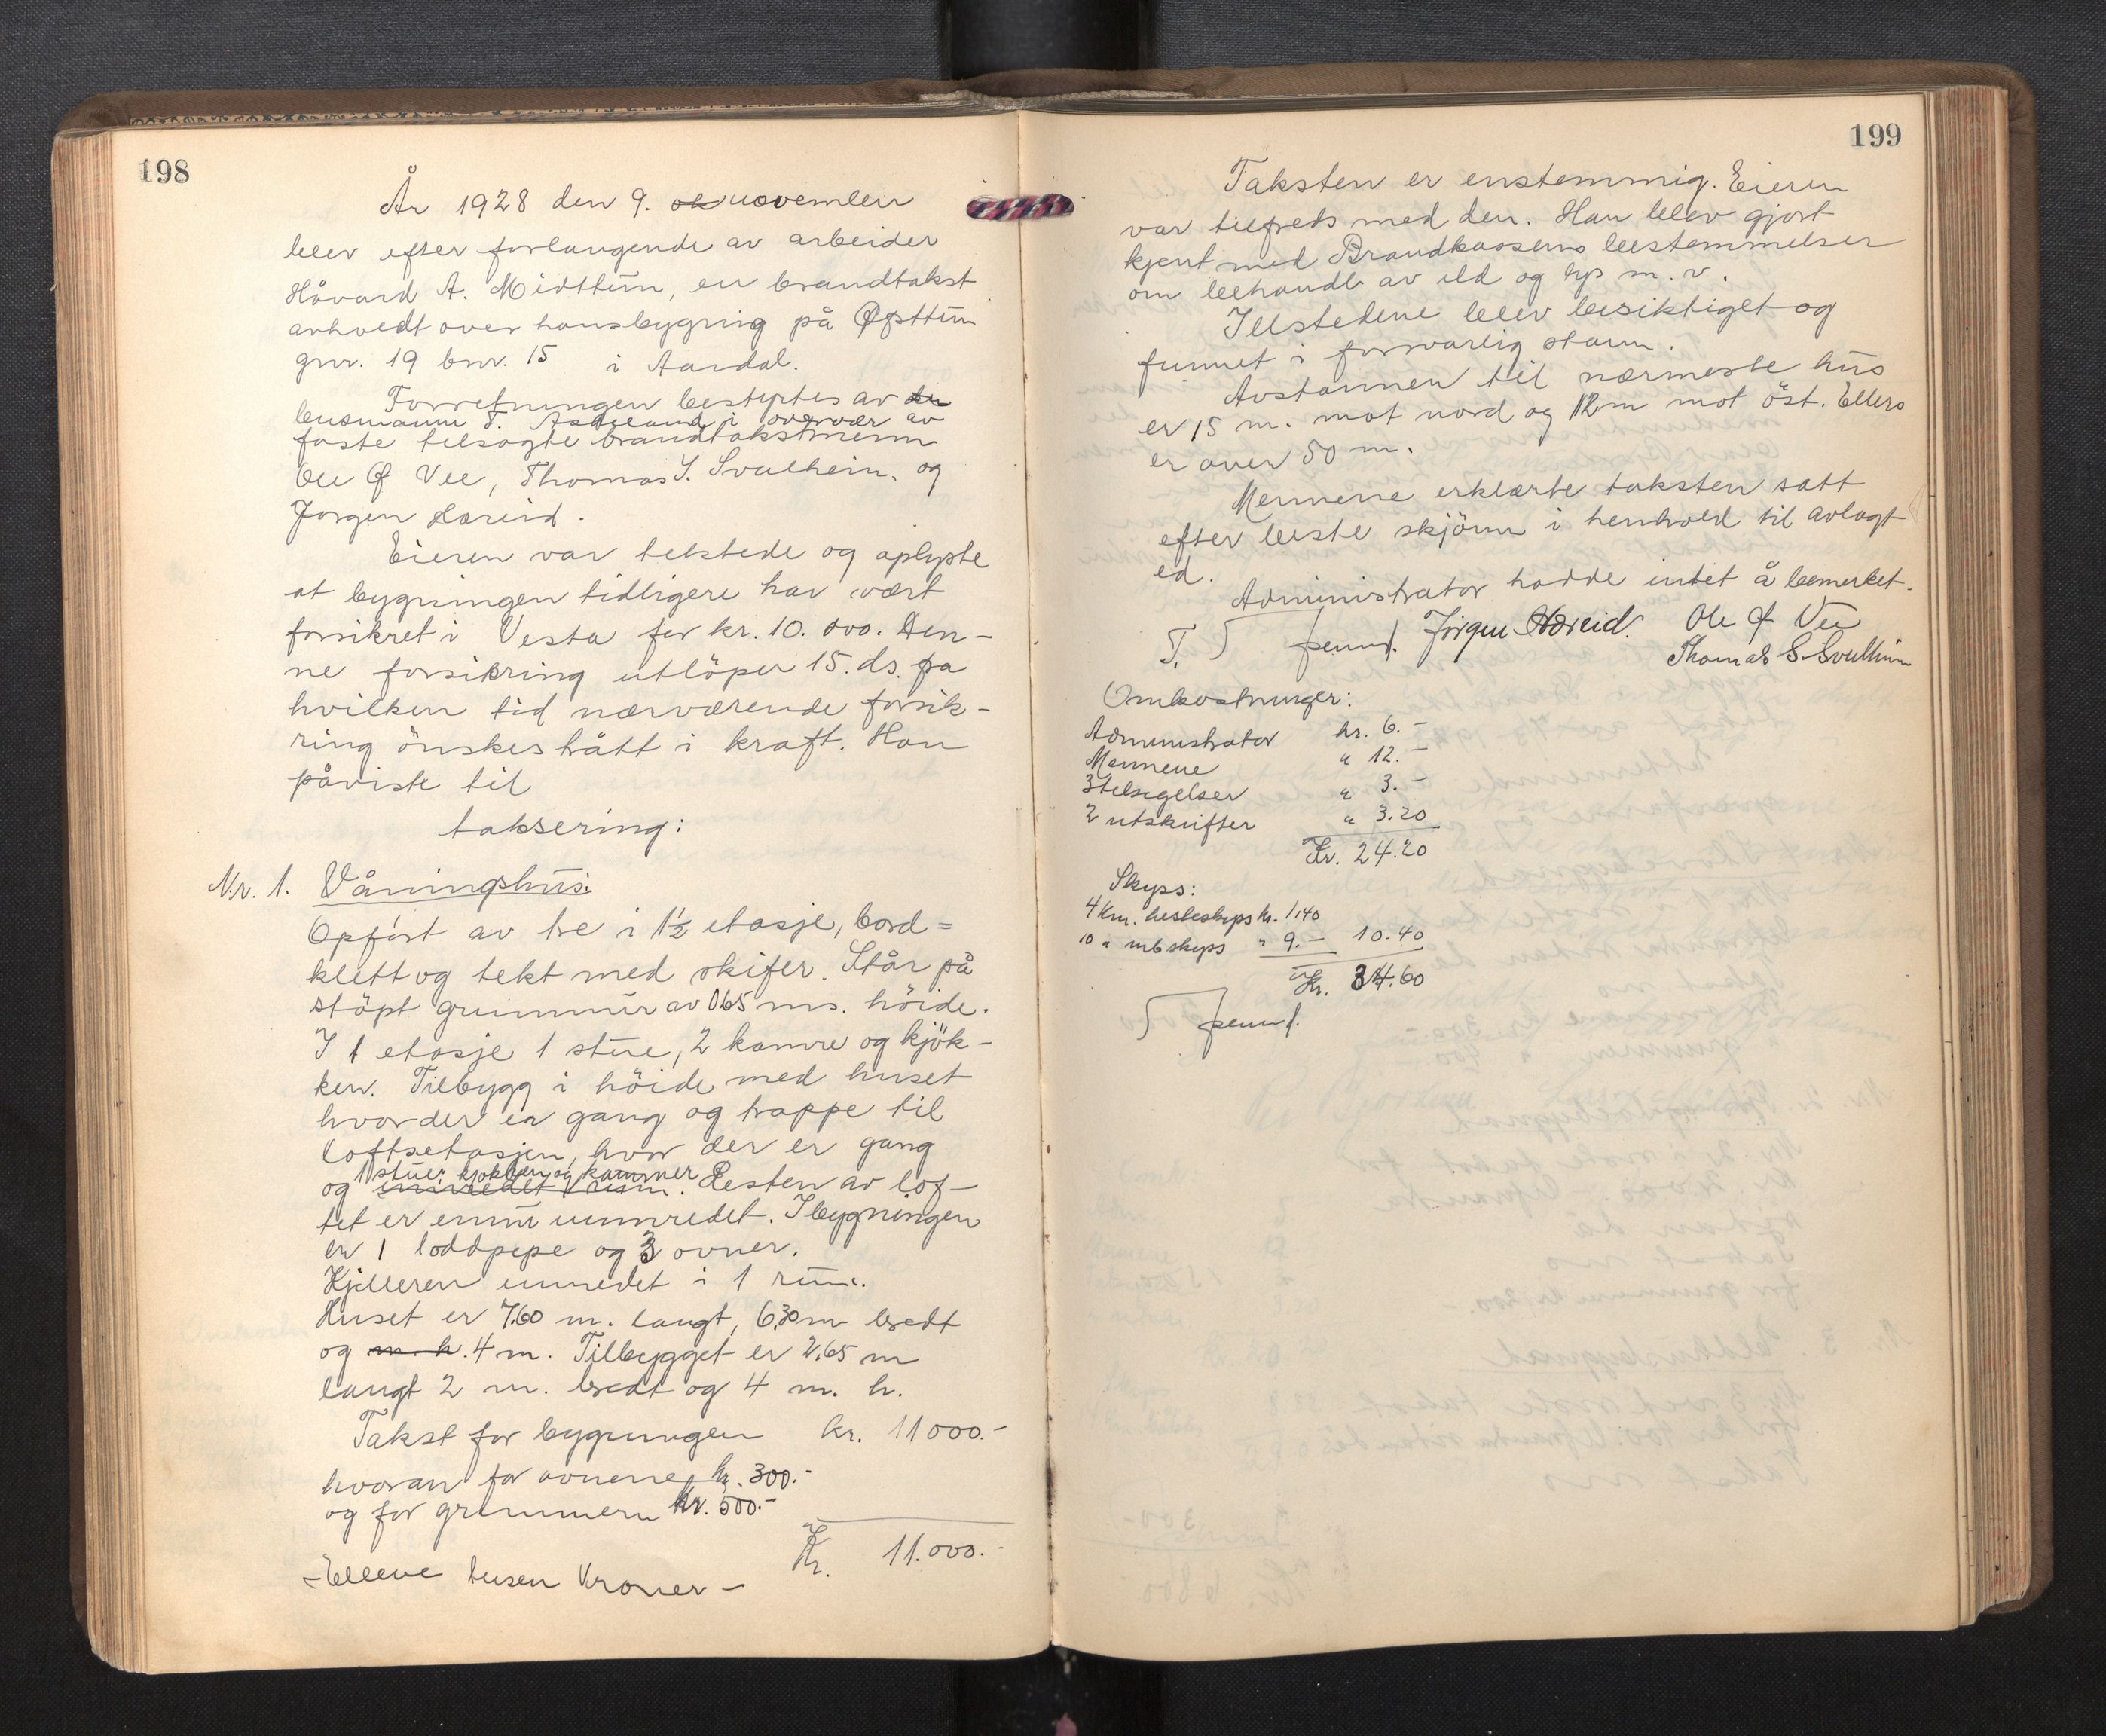 198
År 1928 den 9. ok november
blev efter forlangende av arbeider
Håvard A. Midttun, en brandtakst
avholdt over husbygning på Øfsttun
gnr. 19 bnr. 15 i Aardal.
Forretningen bestyrtes av den
lensmann T. i overvær av
faste tilsagte brandtakstmenn
Ole Ø Vee, Thomas S. Svalheim, og
Jørgen Hæreid.
Eieren var tilstede og oplyste
at bygningen tidligere har vært
forsikret i Vesta for kr. 10.000. Den-
ne forsikring utlöper 15. ds. fra
hvilken tid nærværende forsik-
ring önskes trått i kraft. Han
påviste til
taksering:
Nr. 1. Våningshus:
Opført av tre i 1½ etasje, bord=
klett og tekt med skifer. Står på
stöpt grunnmur av 0,65 ms. höide.
I 1 etasje 1 stue, 2 kamre og kjök-
ken. Tilbygg i höide med huset
hvor der er gang og trappe til
loftsetasjen, hvor der er gang
1 stue, kjøkken og kammer
og innredet 1 rum. Resten av lof-
tet er ennu uinnredet. I bygningen
er 1 loddpipe og 3 ovner.
Kjelleren innredet i 1 rum.
Huset er 7.60 m. langt, 6.30 m bredt
og m. h. 4 m. Tilbygget er 2.65 m
langt 2 m. bredt og 4 m. h.
Takst for bygningen kr. 11000.-
hvorav for ovnene kr. 300.-
og for grunnmuren kr. 500.-
Kr. 11.000.-
- Elleve tusen Kroner -
199
Taksten er enstemmig. Eieren
var tilfreds med den. Han blev gjort
kjent med Brandkassens bestemmelser
om behandl. av ild og lys m. v.
Illstedene blev besiktiget og
funnet i forsvarlig stann.
Avstannen til nærmeste hus
er 15 m. mot nord og 12 m mot öst. Ellers
er over 50 m.
Mennene erklærte taksten satt
efter beste skjönn i henhold til avlagt
ed.
Administrator hadde intet å bemerket.
T. Jørgen Hæreid. Ole Ø Vee
Thomas S. Svalheim
Omkostninger:
Administrator kr. 6.-
Mennene " 12.-
3 tilsigelser " 3.-
2 utskrifter " 3.20
Kr. 24.20
Skyss:
4 km. hesteskyss kr. 1,40
10 " mb skyss " 9.- 10.40
Kr. 34.60